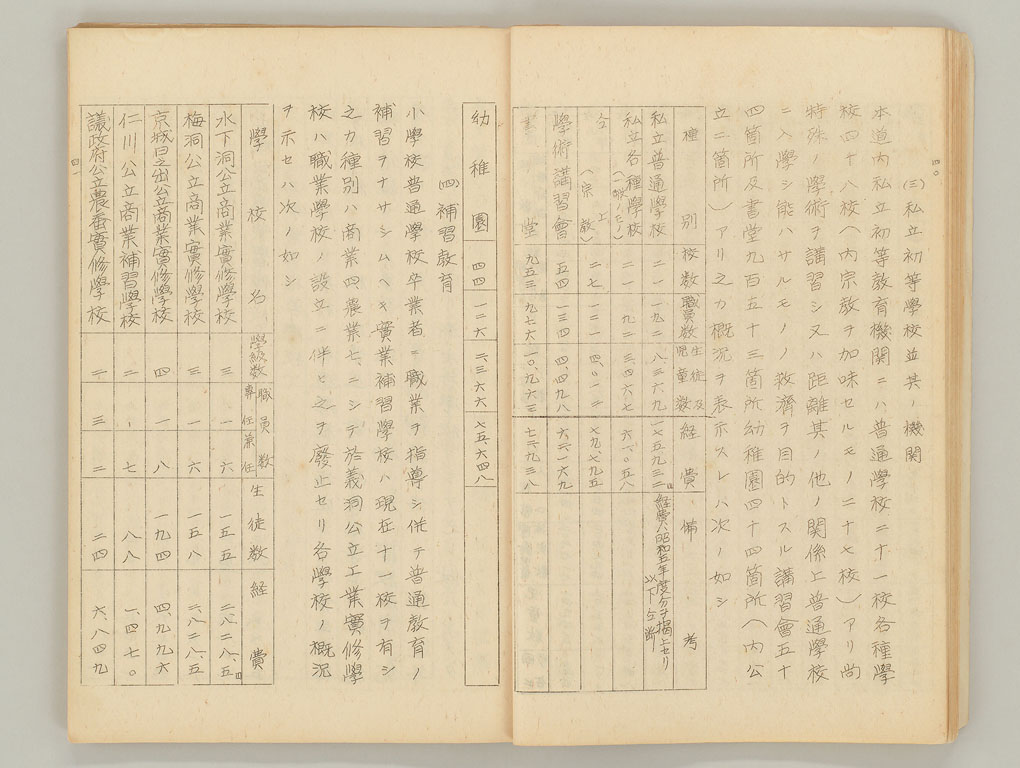 四〇
(三)私立初等學校並其ノ機關
本道内私立初等教育機關ニハ普通學校二十一校各種學
校四十八校(内宗教ヲ加味セルモノ二十七校)アリ尚
特殊ノ學術ヲ講習シ又ハ距離其ノ他ノ關係上普通學校
ニ入學シ能ハサルモノノ救濟ヲ目的トスル講習會五十
四箇所及書堂九百五十三箇所幼稚園四十四箇所(内公
立二箇所)アリ之カ概況ヲ表示スレハ次ノ如シ
種別 校數 職員數 生徒及兒童數 経費 備考
私立普通學校 二一 一九二 八三六九 一七五、九三二円 経費ハ昭和五年度分ヲ掲上セリ 以下仝断
私立各種學校(一般ノモノ) 二一 九二 三、四六七
仝上(宗教) 二七 一三一 七九、七九五
學術講習會 五四 一三四 四、四九八 六二一六九
書堂 九五三 九七六 一〇、九六三 七二九三八
幼稚園 四四 一二六 二、三六六 七五、六四八
(四)補習教育
小學校普通學校卒業者ニ職業ヲ指導シ併テ普通教育ノ
補習ヲナサシムヘキ實業補習學校ハ現在十一校ヲ有シ
之カ種別ハ商業四、農業七、ニシテ於義洞公立工業實修學
校ハ職業學校ノ設立ニ伴ヒ之ヲ廢止セリ各學校ノ概況
ヲ示セハ次ノ如シ
學校名 學級數 職員數 專任 兼任 生徒數 経費
水下洞公立商業實修學校 三 一 六 一五五 二、八二八、五円
梅洞公立商業實修學校 三 一 六 一五八 二、八二八、五
京城日之出公立商業實修學校 四 一 八 一九四 四、九九六
仁川公立商業補習學校 二 、 七 八八 一、四七〇
議政府公立農蚕實修學校 二 三 二 二四 六、八四九
四一